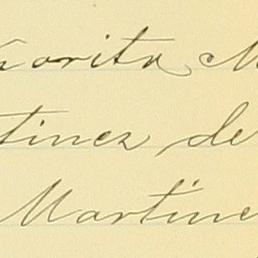 orita M
tinez, de
Martine